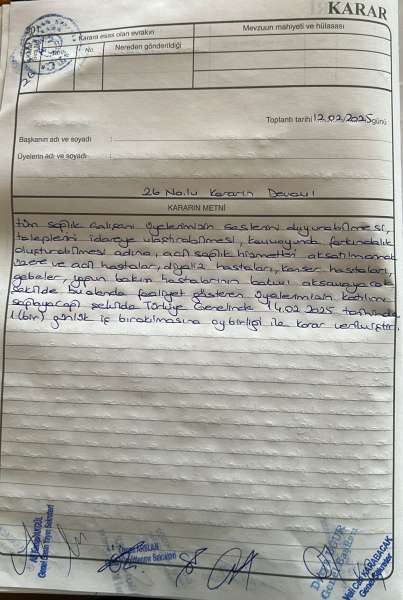 KARAR
Karara esas olan evrakın
Mevzuun mahiyeti ve hülâsası
No.
Nereden gönderildiği
Toplantı tarihi 12.02.2025 günü
Başkanın adı ve soyadı :
Üyelerin adı ve soyadı :
26 No.lu Kararın Devamı
KARARIN METNİ
tüm sağlık çalışanı üyelerimizin seslerini duyurabilmesi,
taleplerini idareye ulaştırabilmesi, kamuoyunda farkındalık
oluşturabilmesi adına, acil sağlık hizmetleri aksatılmamak
üzere ve acil hastalar, diyaliz hastaları, kanser hastaları,
gebeler, yoğun bakım hastalarının bakımı aksamayacak
şekilde bu alanda faaliyet gösteren üyelerimizin katılımı
sağlayacağı şekilde Türkiye Genelinde 14.02.2025 tarihinde
1 (bir) günlük iş bırakılmasına oybirliği ile karar verilmiştir.
ARSLAN
KARABACAK
Genel Sekreter